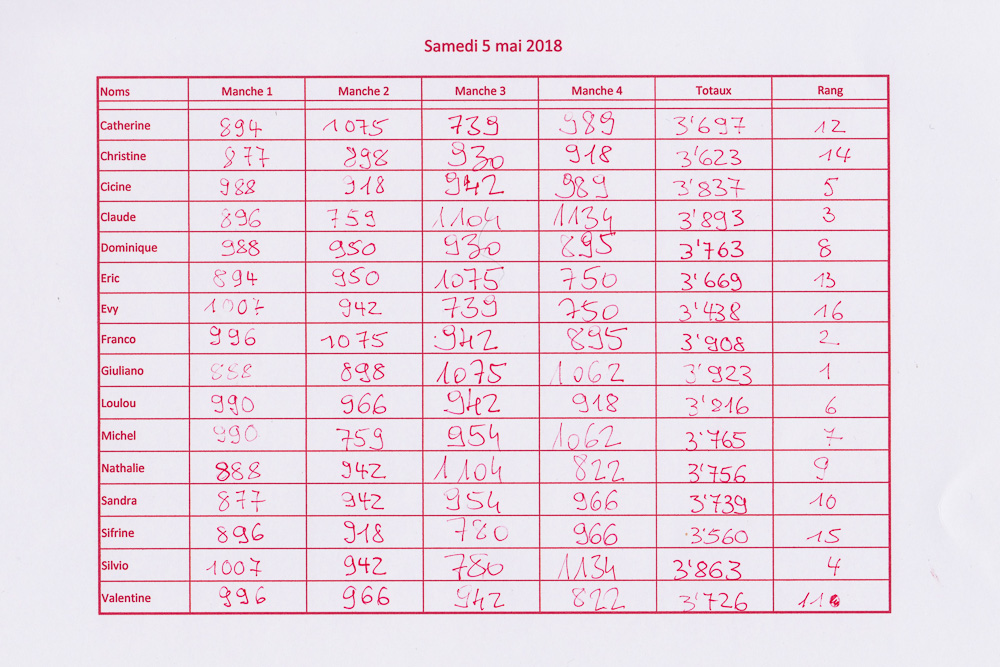 Samedi 5 mai 2018
Noms Manche 1 Manche 2 Manche 3 Manche 4 Totaux Rang
Catherine 894 1075 739 989 3'697 12
Christine 877 898 930 918 3'623 14
Cicine 988 918 942 989 3'837 5
Claude 896 759 1104 1134 3'893 3
Dominique 988 950 930 895 3'763 8
Eric 894 950 1075 750 3'669 13
Evy 1007 942 739 750 3'438 16
Franco 996 1075 942 895 3'908 2
Giuliano 888 898 1075 1062 3'923 1
Loulou 990 966 942 918 3'816 6
Michel 990 759 954 1062 3'765 7
Nathalie 888 942 1104 822 3'756 9
Sandra 877 942 954 966 3'739 10
Sifrine 896 918 780 966 3'560 15
Silvio 1007 942 780 1134 3'863 4
Valentine 996 966 942 822 3'726 11